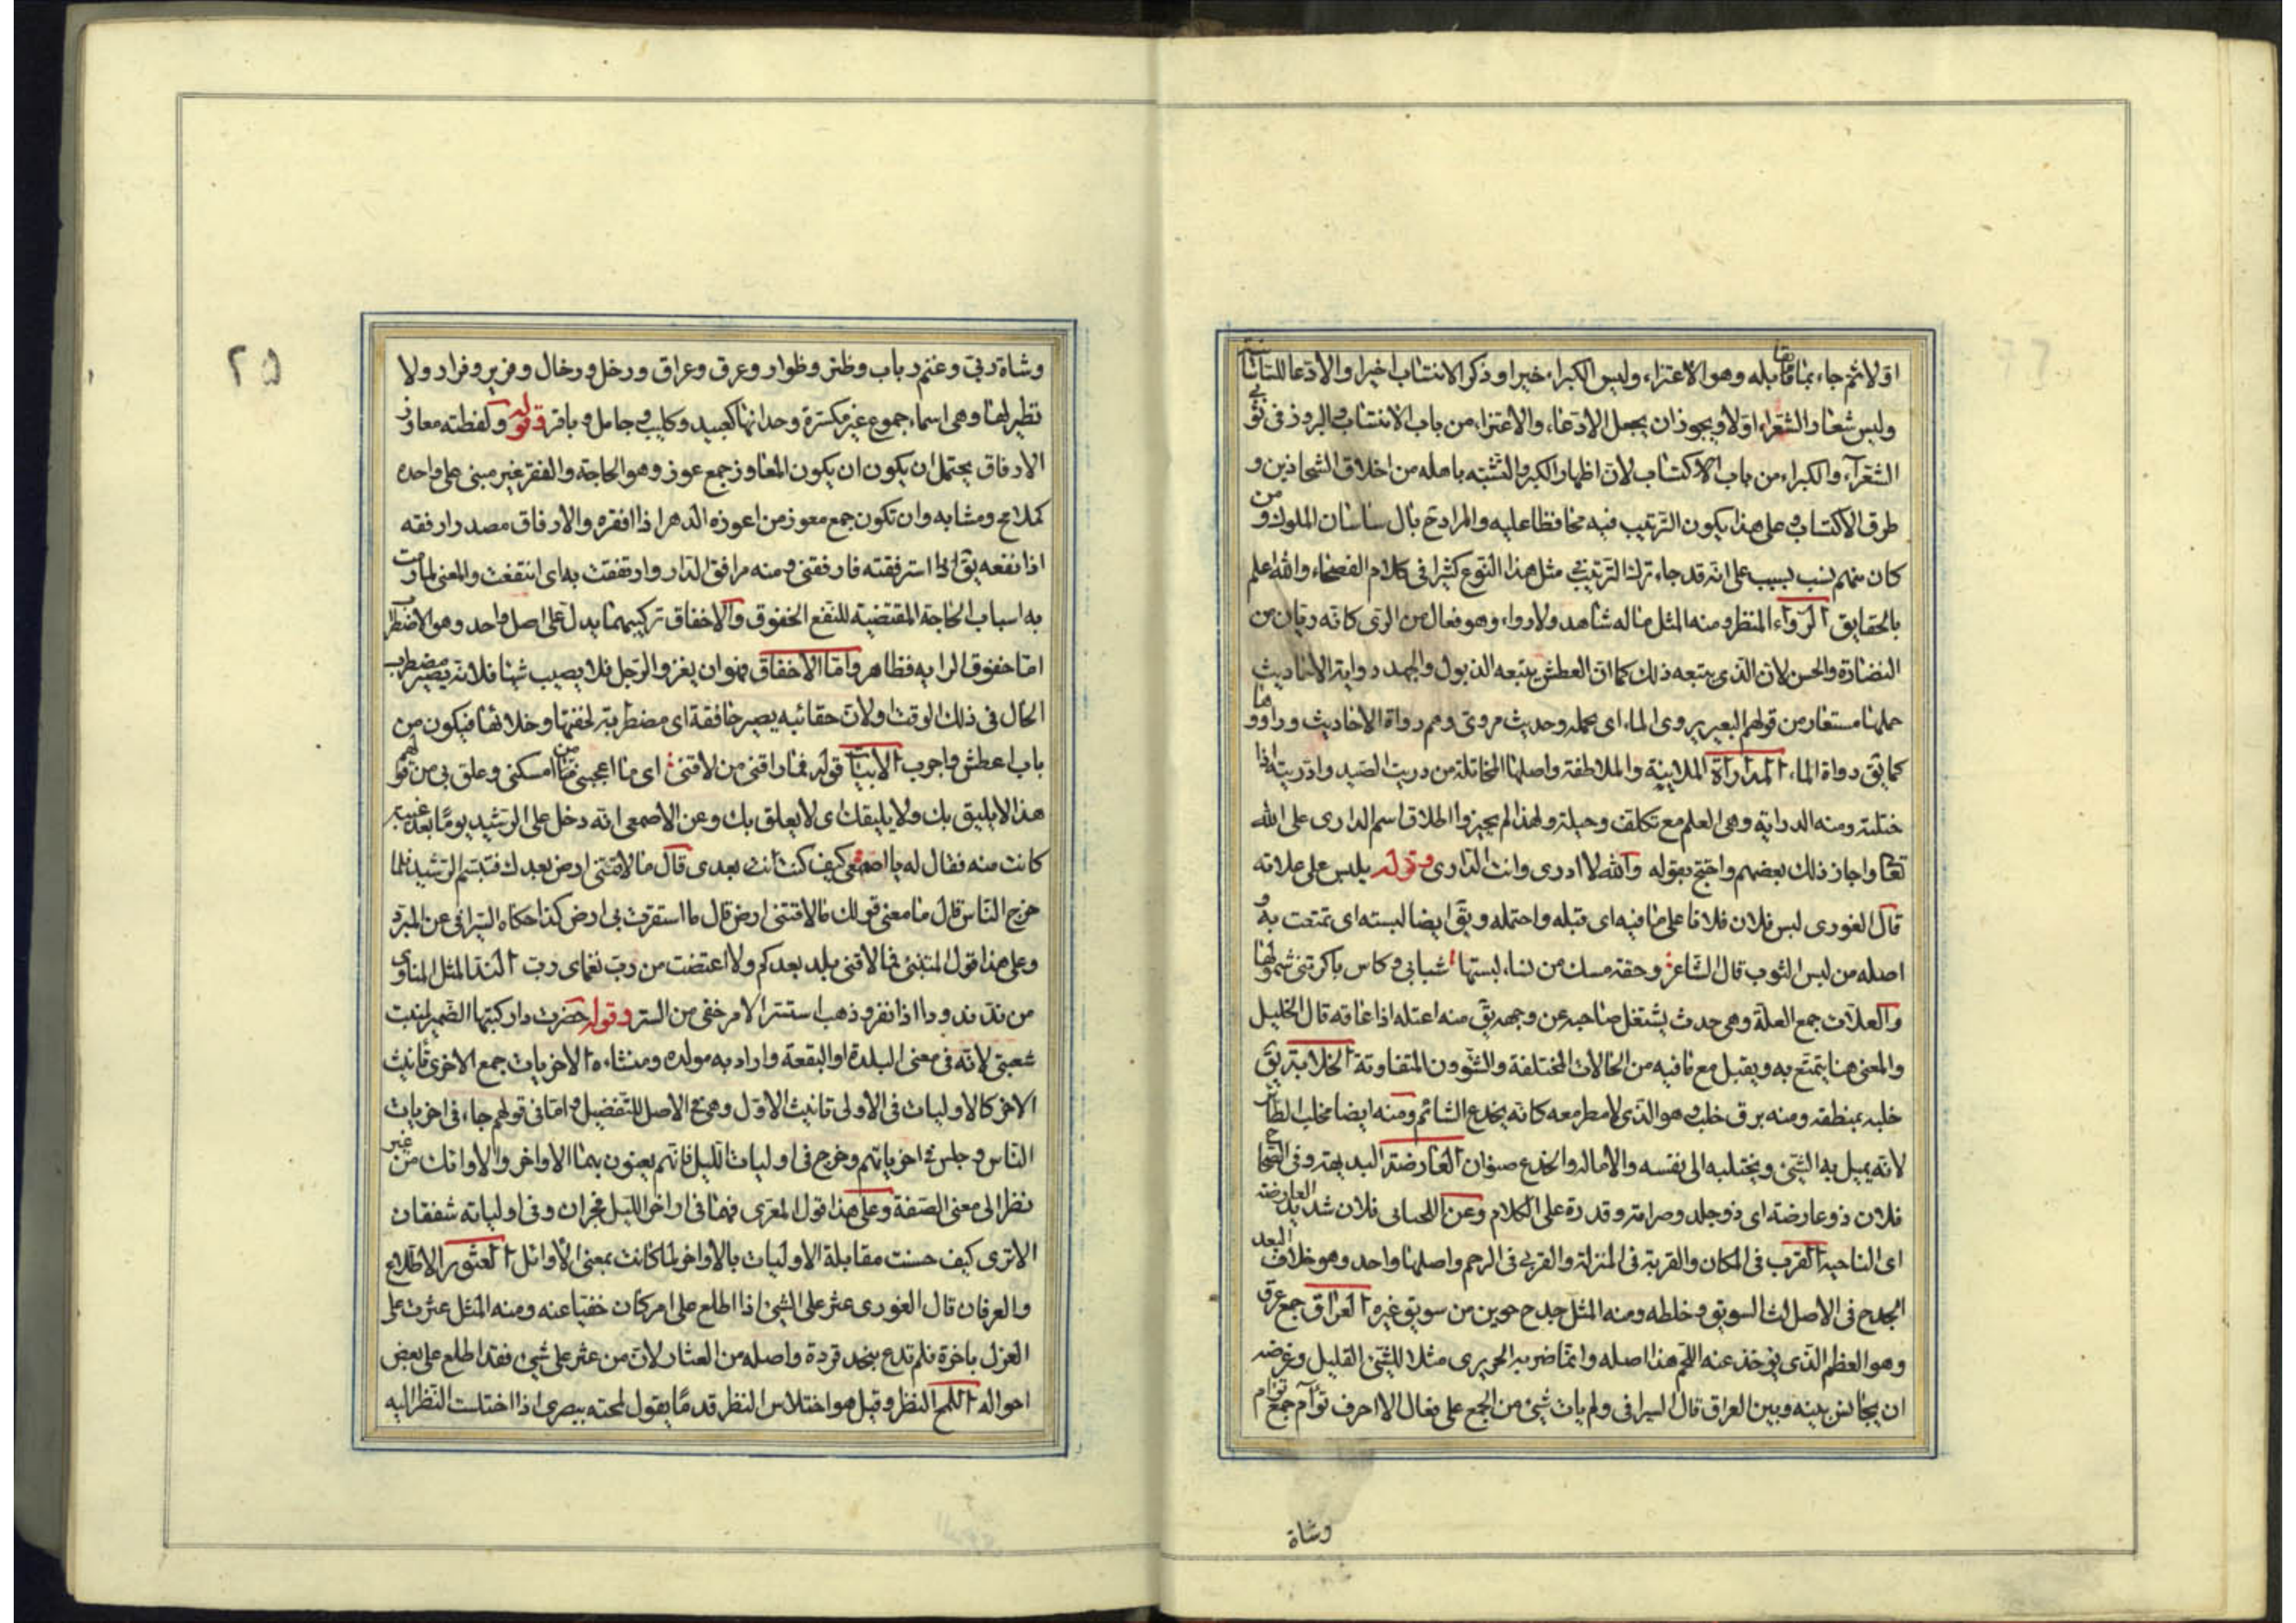 اولا ثم جاء بما قابله وهو الاعتزاء وليس الكبراء خيرا وذكر الانتساب اخيرا والادعا للساسانية
وليس شعار الشعراء اولا ويجوز ان يجعل الادعاء والاعتزاء من باب الانتساب والبروز فى زى
الشعرآء والكبراء من باب الاكتساب لان اظهار الكبر والتشبه باهله من اخلاق الشحاذين و
طرق الاكتساب وعلى هذا يكون الترتيب فيه محافظا عليه والمراد بال ساسان الملوك ومن
كان منهم بسبب على انه قد جاء ترك الترتيب مثل هذا النوع كثيرا فى كلام الفصحاء والله اعلم
بالحقايق الرواء المنظر ومنه المثل ماله شاهد ولا رواء وهو فعال من الرى كانه ريان من
النضارة والحسن لان الذى يتبعه ذلك كما ان العطش يتبعه الذبول والجهد رواية الاحاديث
حملها مستعار من قولهم البعير يروى الماء اى يحمله وحديث مروى وهم رواة الاحاديث وراووها
كما يق رواة الماء المدارأة الملاينة والملاطفة واصلها المخاتلة من دريت الصيد وادريته اذا
ختلته ومنه الدراية وهى العلم مع تكلف وحيلة ولهذا لم يجيزوا اطلاق اسم الدارى على الله
تعا واجاز ذلك بعضهم واحتج بقوله والله لا ادرى وانت الدارى وقوله يلبس على علاته
قال الغورى لبس فلان فلانا على ما فيه اى قبله واحتمله ويق ايضا لبسته اى تمتعت به و
اصله من لبس الثوب قال الشاعر وحقة مسك من نساء لبستها شبابى وكاس باكرتنى شمولها
والعلات جمع العلة وهى حدث يشتغل صاحبه عن وجهه يق منه اعتله اذا عاقه قال الخليل
والمعنى هنا يتمتع به ويقبل مع ما فيه من الحالات المختلفة والشوون المتفاوتة الخلابة يق
خلبه بمنطقه ومنه برق خلب وهو الذى لا مطر معه كانه يخدع الشائم ومنه ايضا مخلب الطائر
لانه يميل به الشئ ويختلبه الى نفسه والامالة والخدع صنوان العارضة البديهة وفى الصحاح
فلان ذو عارضة اى ذو جلد وصرامة وقدرة على الكلام وعن اللحيانى فلان شديد العارضة
اى الناحية القرب فى المكان والقربة فى المنزلة والقربى فى الرحم واصلها واحد وهو خلاف البعد
الجدح فى الاصل لت السويق وخلطه ومنه المثل جدح جوين من سويق غيره العراق جمع عرق
وهو العظم الذى يوخذ عنه اللحم هذا اصله وانما ضربه الحريرى مثلا للشئ القليل وغرضه
ان يجانس بينه وبين العراق قال السيرافى ولم يات شئ من الجمع على فعال الا احرف تؤآم جمع توأم
وشاة
٢٥
وشاة ربى وغنم رباب وظئر وظوار وعرق وعراق ورخل ورخال وفرير وفرار ولا
نظير لها وهى اسماء جموع غير مكسرة وحدانها كعبيد وكليب وجامل وباقر وقوله ولفظته معاوز
الارفاق يحتمل ان يكون ان يكون المعاوز جمع عوز وهو الحاجة والفقر غير مبنى على واحده
كملامح ومشابه وان تكون جمع معوز من اعوزه الدهر اذا افقره والارفاق مصدر ارفقه
اذا نفعه يق اذا استرفقته فارفقنى ومنه مرافق الدار وارتفقت به اى انتفعت والمعنى لما رمت
به اسباب الحاجة المقتضية للنفع الخفوق والاخفاق تركيبهما يدل على اصل واحد وهو الاضطراب
اما خفوق الراية فظاهر واما الاخفاق فهو ان يغزو الرجل فلا يصيب شيئا فلانه يصير مضطرب
الحال فى ذلك الوقت او لان حقائبه يصير خافقة اى مضطربة لخفتها وخلائها فيكون من
باب اعطش واجرب الابيات قوله فما راقنى من لاقنى اى ما اعجبنى من امسكنى وعلق بى من قولهم
هذا لا يليق بك ولا يليقك اى لا يعلق بك وعن الاصمعى انه دخل على الرشيد يوما بعد غيبة
كانت منه فقال له يا اصمعى كيف كنت انت بعدى قال ما لاقتنى ارض بعدك فتبسم الرشيد فلما
خرج الناس قال ما معنى قولك ما لاقتنى ارض قال ما استقرت بى ارض كذا حكاه السيرافى عن المبرد
وعلى هذا قول المتنبئ فما لاقنى بلد بعدكم ولا اعتضت من رب نعماى رب الند المثل المناوى
من ند ندودا اذا نفر وذهب استتر الامر خفى من الستر وقوله حضرت دار كتبها الضمير لمنبت
شعبتى لانه فى معنى البلدة او البقعة واراد به مولده ومنشاءه الاخريات جمع الاخرى تانيث
الاخر كالاوليات فى الاولى تانيث الاول وهى فى الاصل للتفضيل واما فى قولهم جاء فى اخريات
الناس وجلس فى اخرياتهم وخرج فى اوليات الليل فانهم يعنون بهما الاواخر والاوائل من غير
نظر الى معنى الصفة وعلى هذا قول المعرى فهما فى اواخر الليل فجران وفى اولياته شفقان
الا ترى كيف حسنت مقابلة الاوليات بالاواخر لما كانت بمعنى الاوائل العثور الاطلاع
والعرفان قال الغورى عثر على الشئ اذا اطلع على امر كان خفيا عنه ومنه المثل عثرت على
الغزل باخرة فلم تدع بنجد قردة واصله من العثار لان من عثر على شئ فقد اطلع على بعض
احواله اللمح النظر وقيل هو اختلاس النظر قدما يقول لمحته ببصرى اذا اختلست النظر اليه